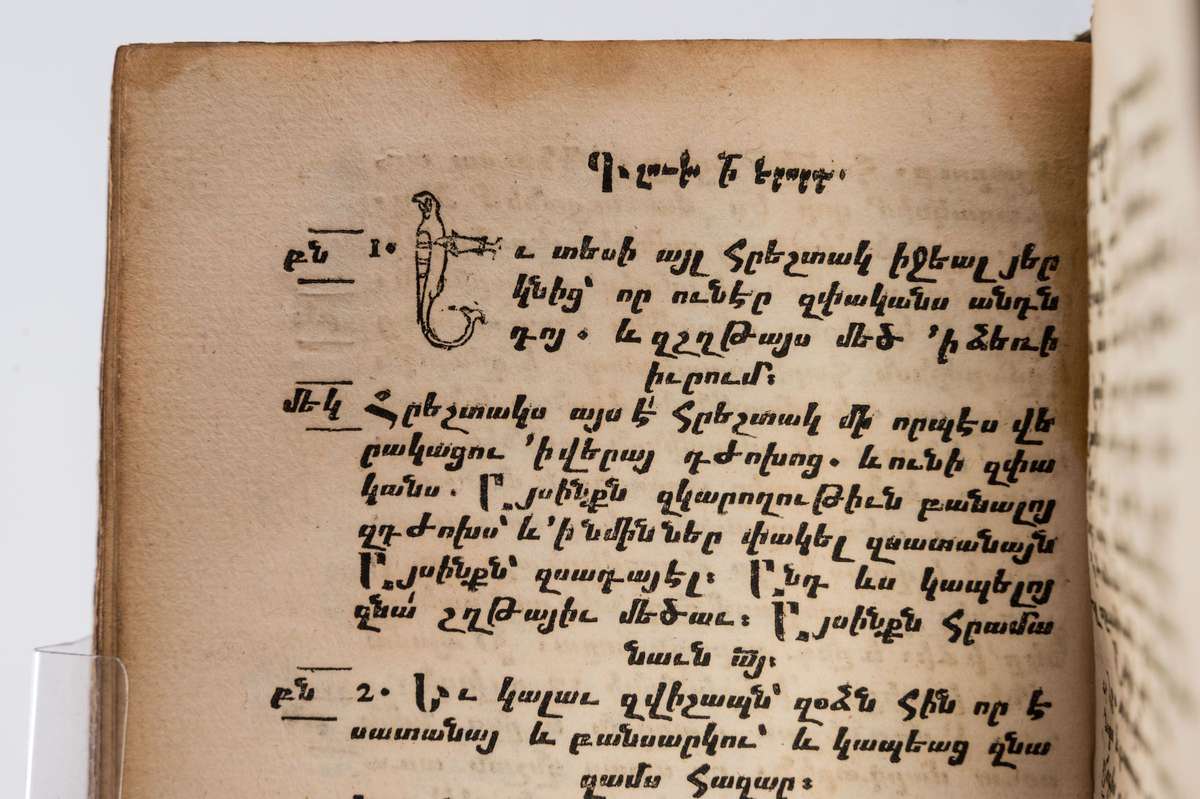 Գլուխ Ի երորդ.
բն 1. Եւ տեսի այլ հրեշտակ իջեալ յեր
կնից՝ որ ունէր զփականս անդն
դոյ. և զշղթայս մեծ ՚ի ձեռի
իւրում։
մեկ Հրեշտակս այս է՛ հրեշտակ մի որպէս վե
րակացու ՚ի վերայ դժոխոց. և ունի զփա
կանս. Այսինքն զկարողութիւն բանալոյ
զդժոխս՝ և ՚ի նմին ներ փակել զսատանայն
Այսինքն՝ զսադայէլ։ Ընդ ևս կապելոյ
զնա՛ շղթայիւ մեծաւ։ Այսինքն հրամա
նաւն այ.
բն 2. Եւ կալաւ զվիշապն՝ զօձն հին որ է
սատանայ և բանսարկու՝ և կապեաց զնա
զամս հազար։